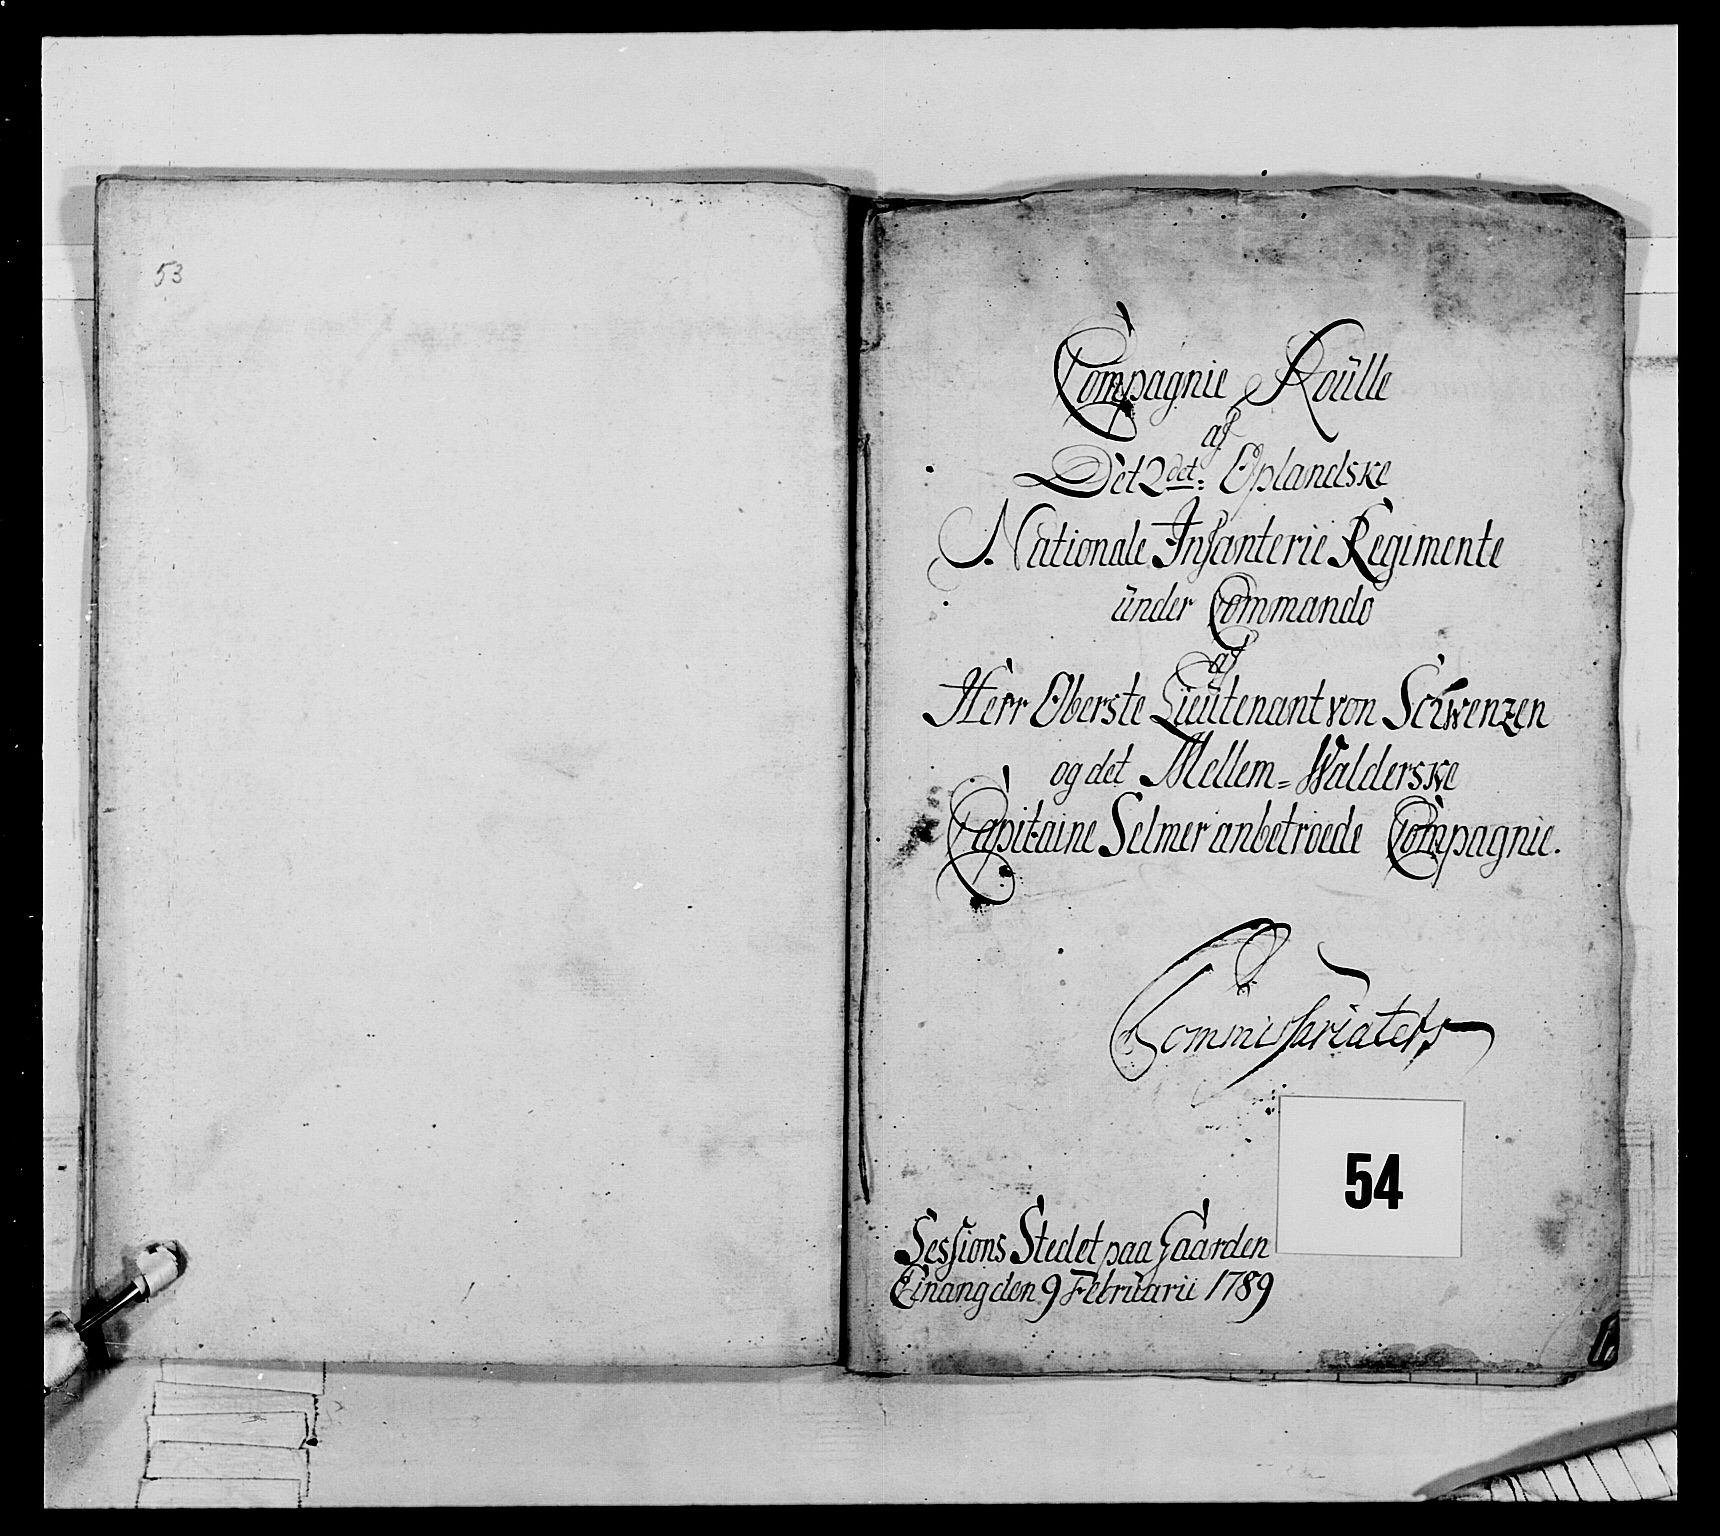 53
Compagnie Roülle
af
Det 2det: Oplandske
Nationale Infanterie Regimente
ünder Commando
af
Herr Oberste Lieütenant von Schwenzen
og det Mellem=Walderske
Capitaine Selmer anbetroede Compagnie.
Commissariatets
54
Sessions Stedet paa Gaarden
Einang den 9 Februarii 1789